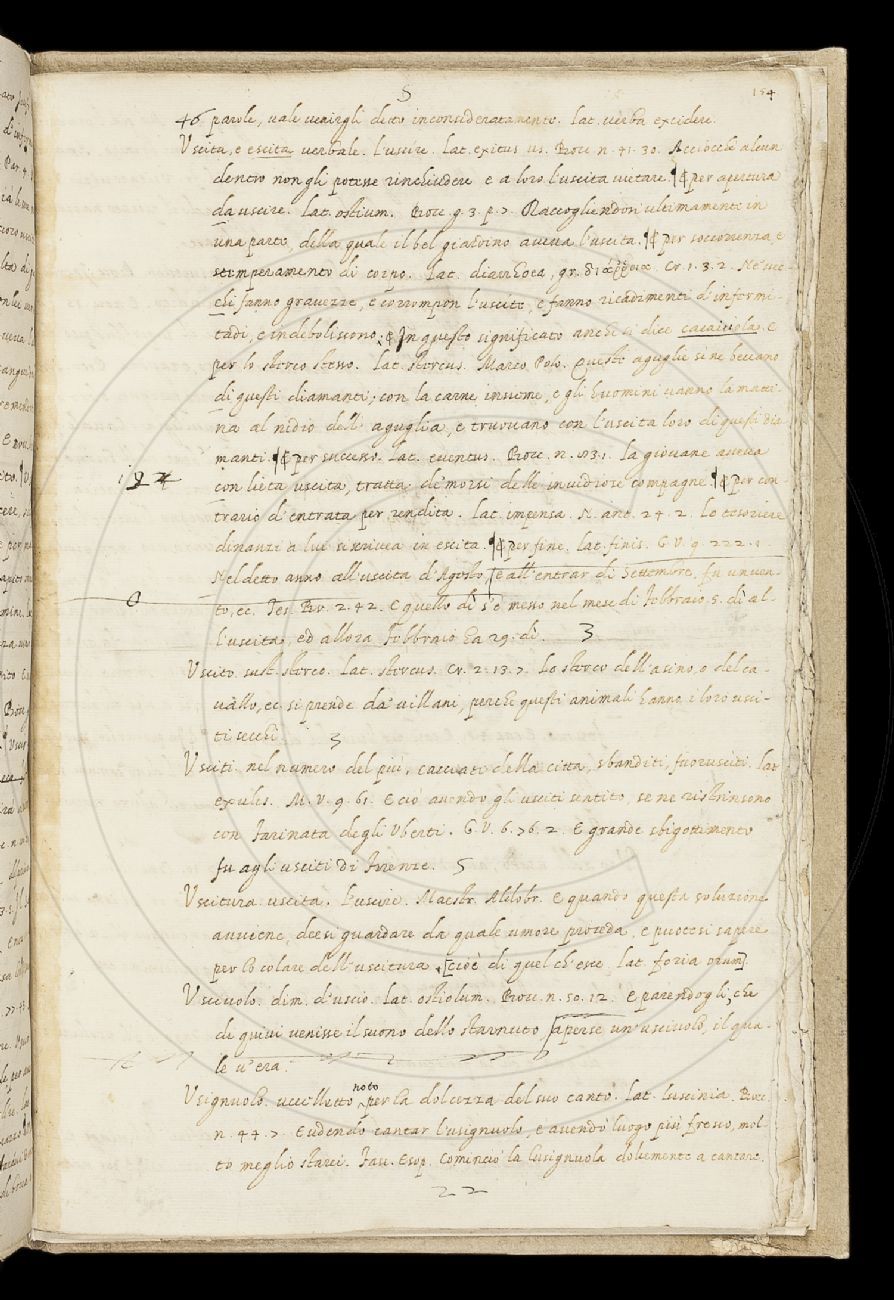 5
154
46 parole, vale venirgli detto inconsideratamente. Lat. verba excidere.
Vscita, e escita verbale. L'uscire. Lat. exitus us. Bocc. n. 41. 30. Acciocchè alcun
dentro non gli potesse rinchiudere e a loro l'uscita vietare. ¶ per apertura
da uscire. Lat. ostium. Bocc. g. 3. p. 7. Raccogliendosi ultimamente in
una parte, della quale il bel giardino aveva l'uscita. ¶ per soccorrenza, e
stemperamento di corpo. Lat. diarrhoea, gr. διάρροια. Cr. 1. 3. 2. Ne' vec-
chi fanno gravezze, e corrompon l'uscite, e fanno ricadimenti d'infermi-
tadi, e indeboliscono. ¶ In questo significato anche si dice cacaiuola. E
per lo sterco stesso. Lat. stercus. Marco Polo. Queste aguglie si ne beccano
di questi diamanti, con la carne insieme, e gli huomini vanno la matti-
na al nidio dell'aguglia, e truovano con l'uscita loro di questi dia-
manti. ¶ per successo. Lat. eventus. Bocc. n. 3. 1. la giovane aveva
192
con lieta uscita, tratta de' morsi delle invidiose compagne. ¶ per con-
trario d'entrata per rendita. Lat. impensa. N. ant. 24. 2. Lo tesoriere
dinanzi a lui scrivea in escita. ¶ per fine. lat. finis. G. V. 9. 222. 1.
Nel detto anno all'uscita d'Agosto, e all'entrar di Settembre, fu un ven-
to, ec. Tes. Br. 2. 42. E quello dì s'è messo nel mese di Febbraio 5. dì al-
l'uscita, ed allora Febbraio ha 29. dì. 3
Vscito sust. sterco. Lat. stercus. Cr. 2. 13. 7. Lo sterco dell'asino, o del ca-
vallo, ec. si prende da' villani, perchè questi animali hanno i loro usci-
ti secchi. 3
Vsciti. nel numero del più, cacciati della città, sbanditi, fuorusciti. Lat.
exules. M. V. 9. 61. E ciò avendo gli usciti sentito, se ne ristrinsono
con Farinata degli Vberti. G. V. 6. 76. 2. E grande sbigottimento
fu agli usciti di Firenze. 5
Vscitura. uscita. L'uscire. Maestr. Aldobr. E quando questa soluzione
avviene, deesi guardare da quale umore proceda, e puotesi sapere
per lo colare dell'uscitura. [cioè di quel ch'esce. lat.
Vsciuolo. dim. d'uscio. Lat. ostiolum. Bocc. n. 50. 12. E parendogli, che
di quivi venisse il suono dello starnuto [aperse un'usciuolo, il qua-
le v'era.
Vsignuolo. uccelletto noto per la dolcezza del suo canto. Lat. luscinia. Bocc.
n. 44. 7. E udendo cantar l'usignuolo, e avendo luogo più fresco, mol-
to meglio starei. Fav. Esop. Cominciò la lusignuola dolcemente a cantare.
22